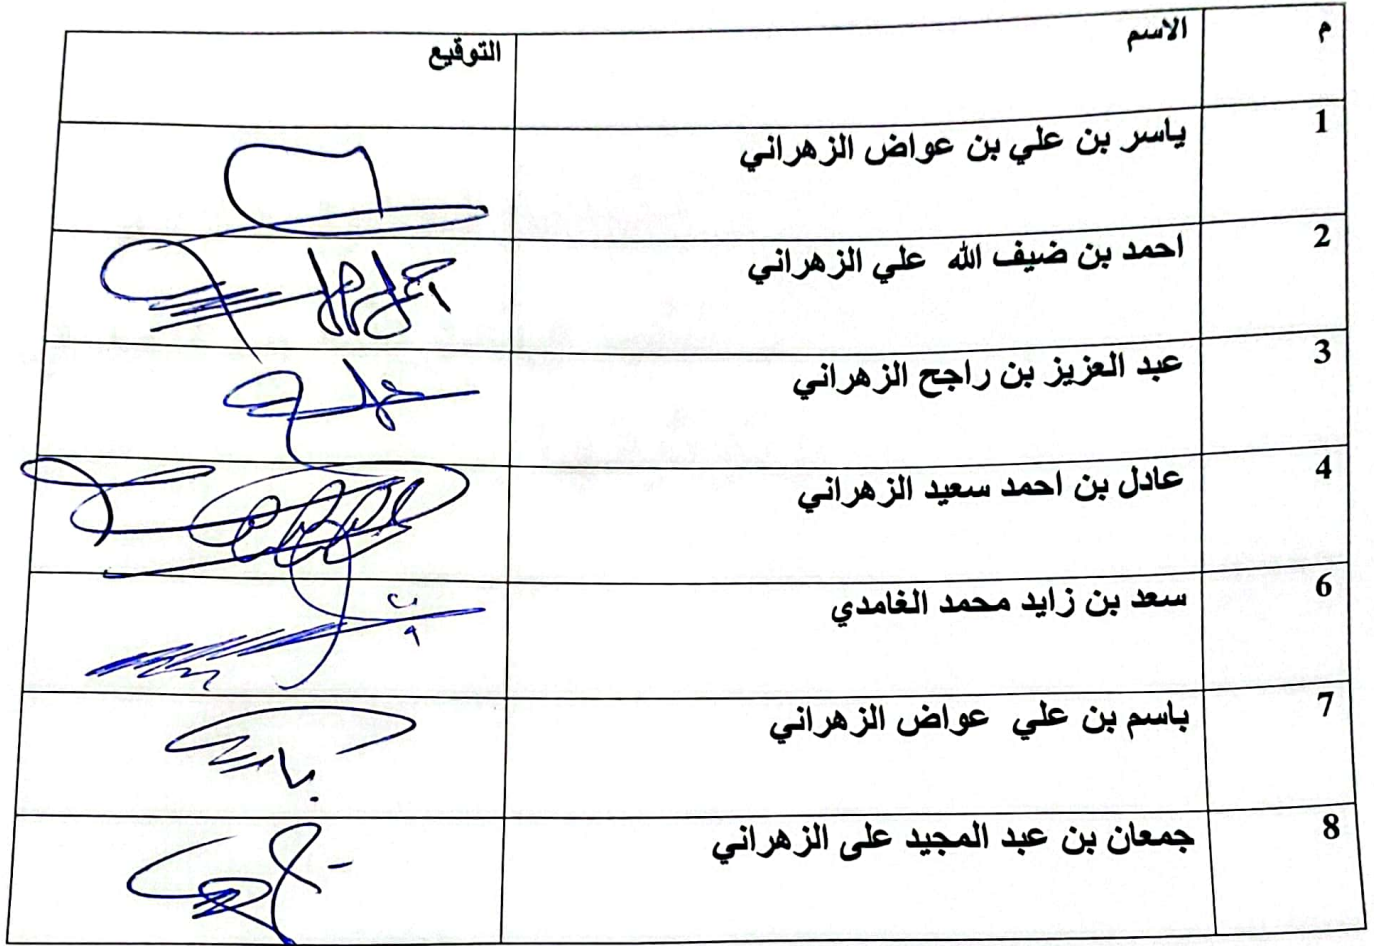 م الاسم التوقيع
1 ياسر بن علي بن عواض الزهراني
2 احمد بن ضيف الله علي الزهراني
3 عبد العزيز بن راجح الزهراني
4 عادل بن احمد سعيد الزهراني
6 سعد بن زايد محمد الغامدي
7 باسم بن علي عواض الزهراني
8 جمعان بن عبد المجيد على الزهراني